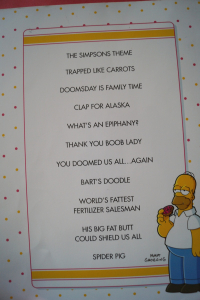 THE SIMPSONS THEME
TRAPPED LIKE CARROTS
DOOMSDAY IS FAMILY TIME
CLAP FOR ALASKA
WHAT'S AN EPIPHANY?
THANK YOU BOOB LADY
YOU DOOMED US ALL...AGAIN
BART'S DOODLE
WORLD'S FATTEST
FERTILIZER SALESMAN
HIS BIG FAT BUTT
COULD SHIELD US ALL
SPIDER PIG
MATT
GROENING